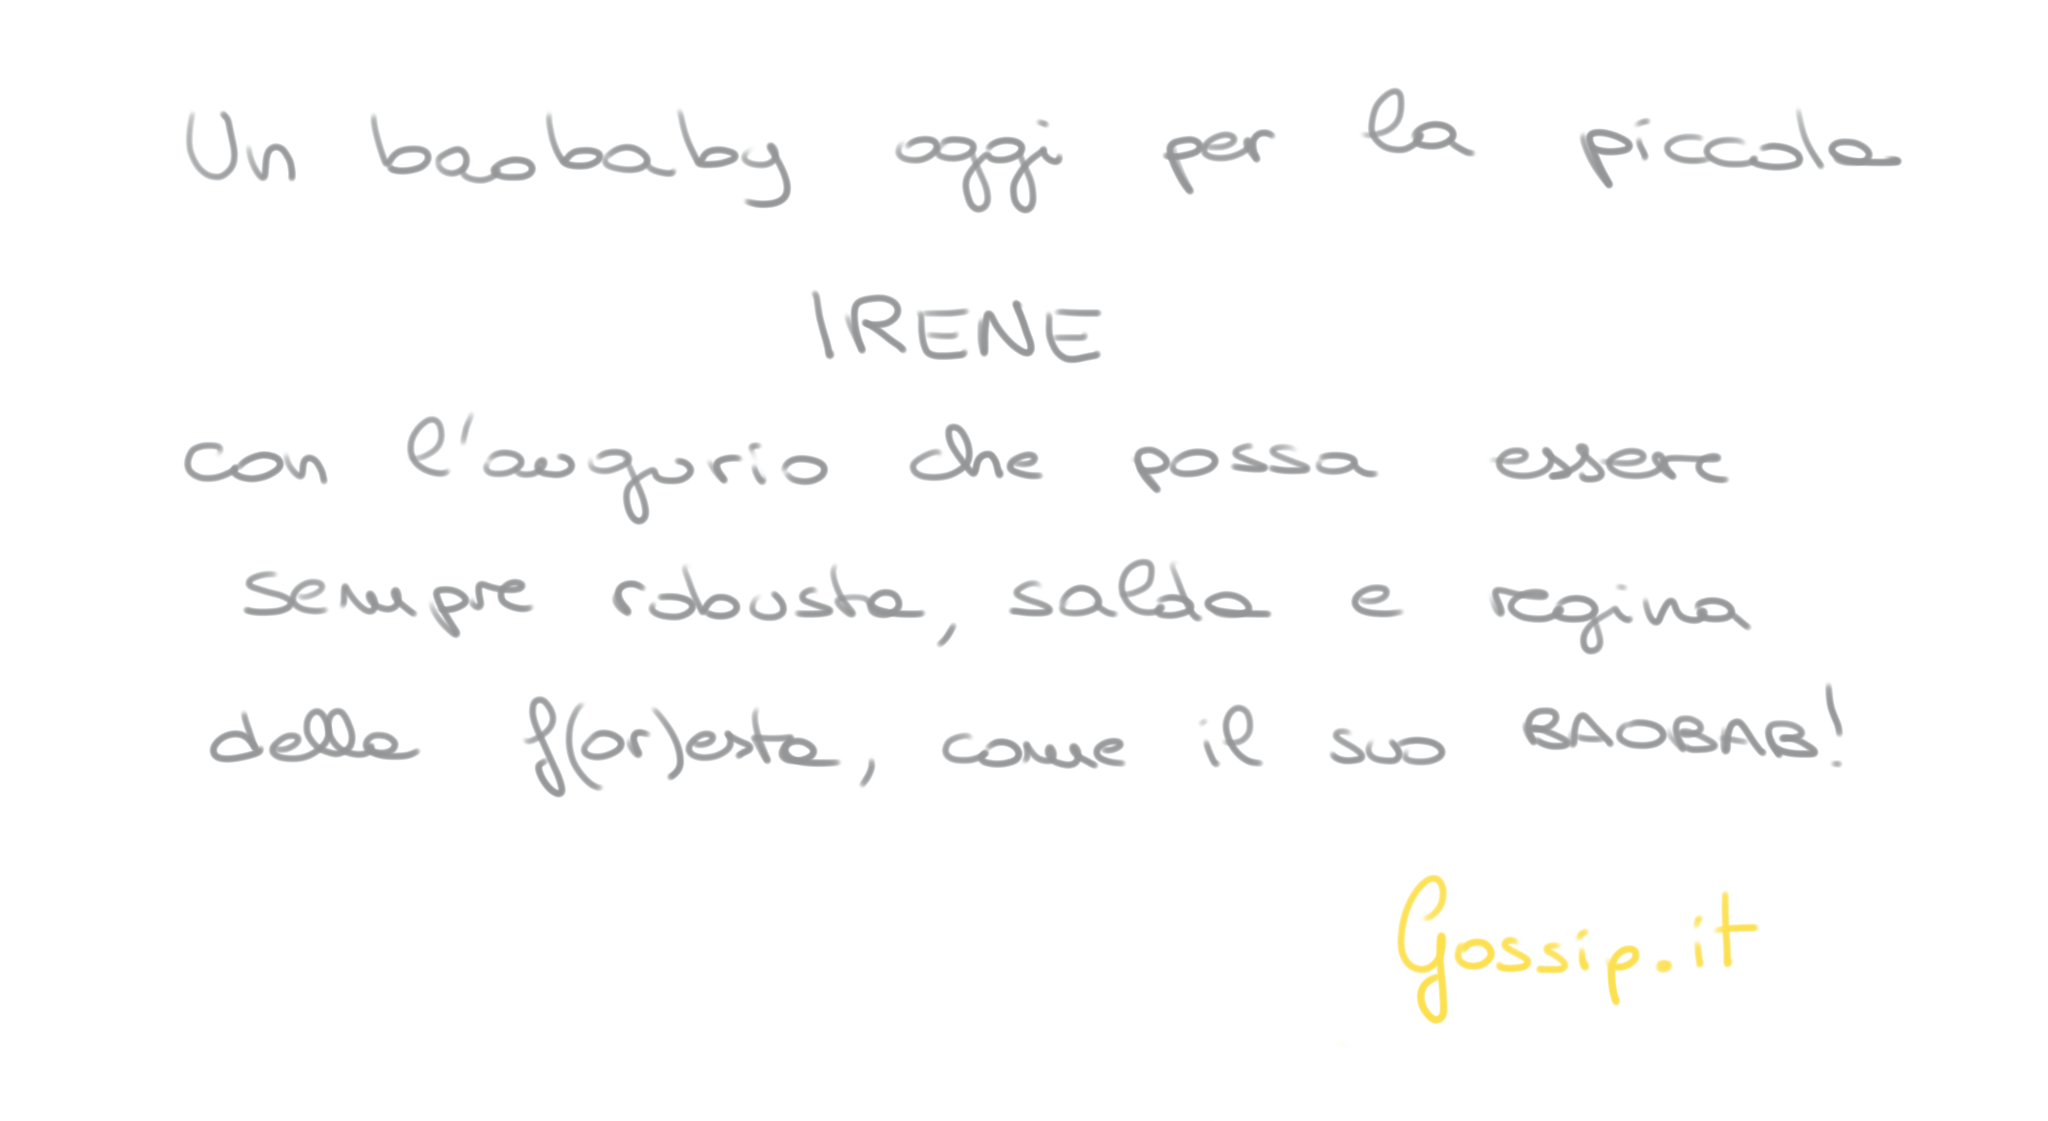 Un baobaby oggi per la piccola
IRENE
con l'augurio che possa essere
sempre robusta, salda e regina
della f(or)esta, come il suo BAOBAB!
Gossip.it